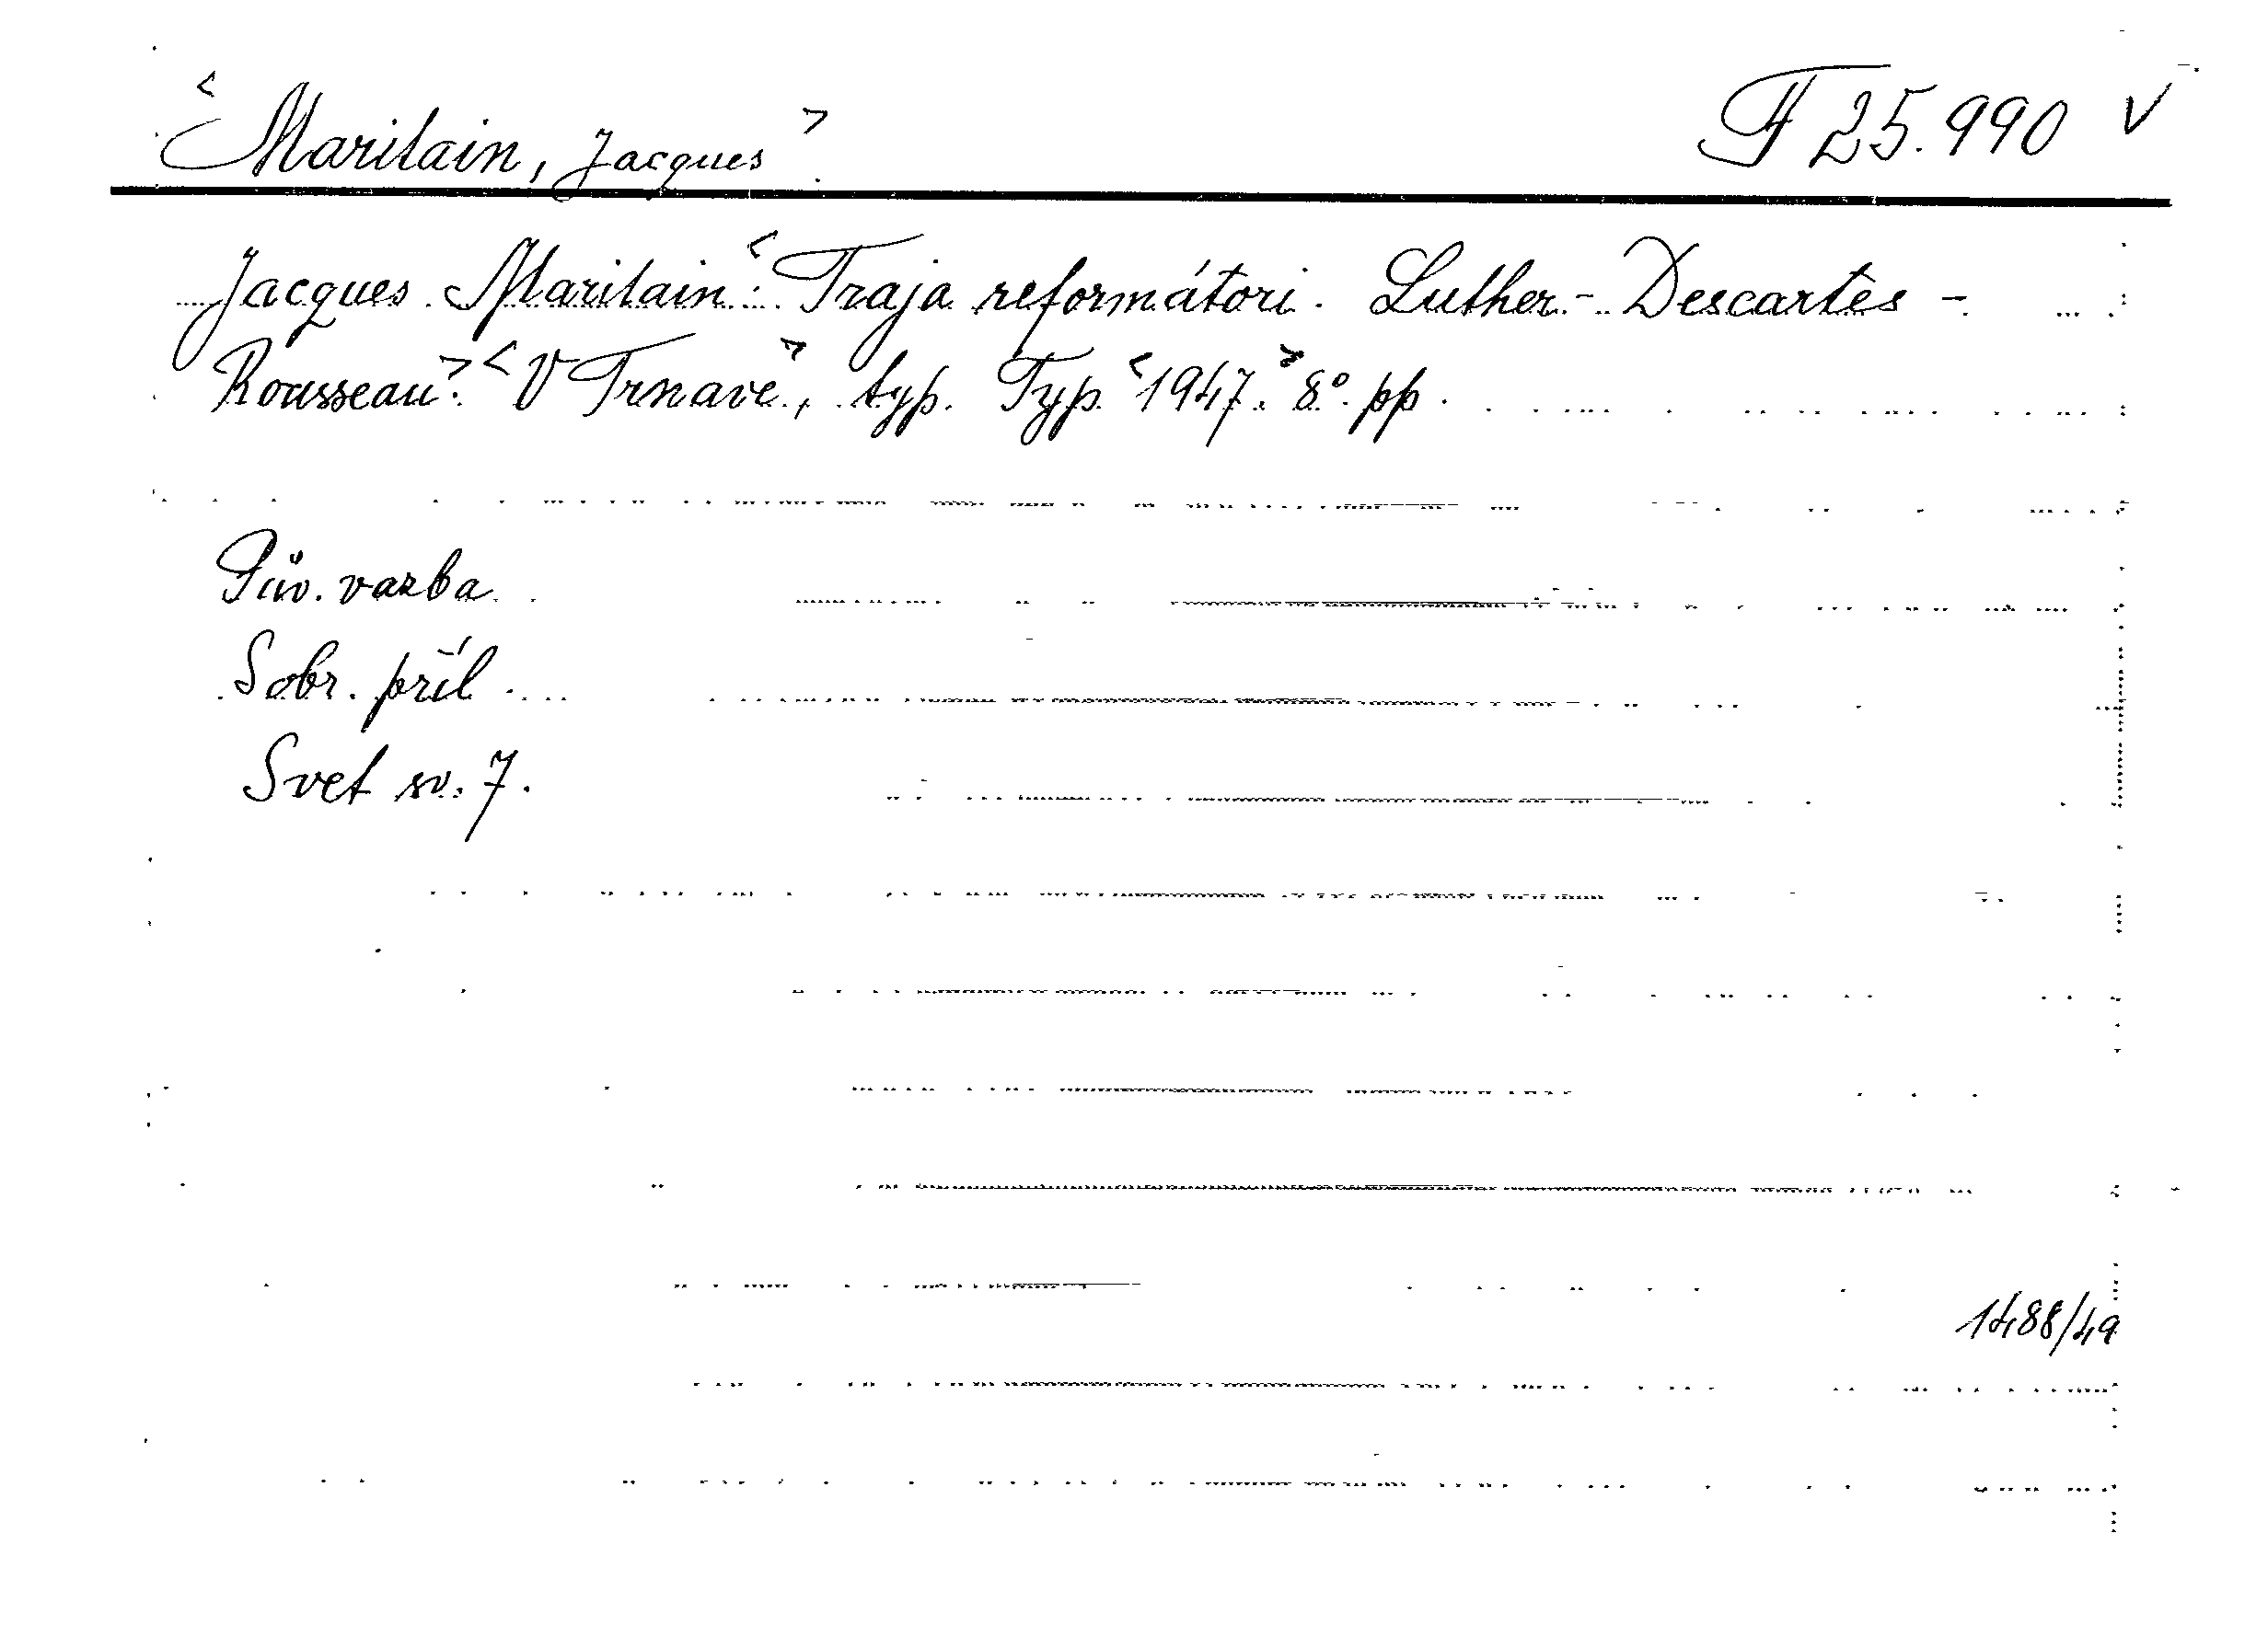 <Maritain, Jacques> F 25.990 V
Jacques Maritain: <Traja reformátori. Luther - Descartes -
Rousseau>. <V Trnave>, typ. Typ. <1947.> 8° pp.
Pův. vazba
S obr. příl.
Svet sv. 7.
1488/49